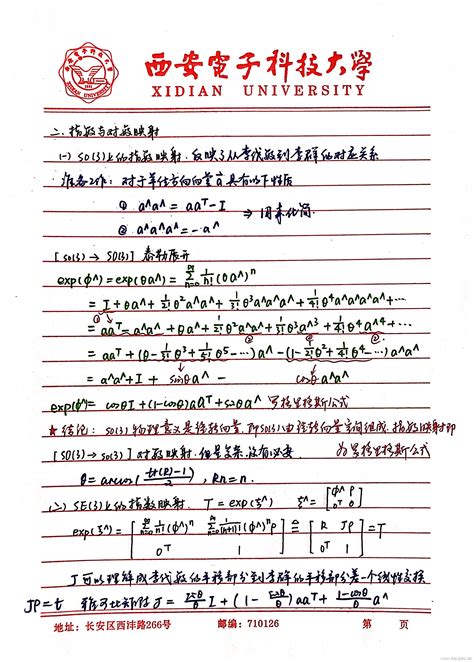 西安电子科技大学
XIDIAN UNIVERSITY
二. 指数与对数映射
(一) SO(3)上的指数映射. 反映了从李代数到李群的对应关系
准备工作: 对于单位方向向量 a 具有以下性质
① a^a^ = aaᵀ-I
② a^a^a^ = -a^
→ 用来化简
[so(3) → SO(3)] 泰勒展开
exp(ϕ^) = exp(θa^) = ∑_{n=0}^{∞} 1/n! (θa^)ⁿ
= I + θa^ + 1/2! θ²a^a^ + 1/3! θ³a^a^a^ + 1/4! θ⁴a^a^a^a^ + ...
= aaᵀ - a^a^ + θa^ + 1/2! θ²a^a^ - 1/3! θ³a^ - 1/4! θ⁴a^a^ + ...
= aaᵀ + (θ - 1/3! θ³ + 1/5! θ⁵ - ...) a^ - (1 - 1/2! θ² + 1/4! θ⁴ - ...) a^a^
= a^a^ + I + sinθ a^ - cosθ a^a^
exp(ϕ^) = cosθ I + (1-cosθ) aaᵀ + sinθ a^ 罗德里格斯公式
★ 结论: so(3) 物理意义是旋转向量, 即so(3)由旋转向量空间组成, 指数映射即为罗德里格斯公式
[SO(3) → so(3)] 对数映射, 但是复杂, 没有必要
θ = arccos( (tr(R)-1)/2 ), Rn = n.
(二) SE(3)上的指数映射. T = exp(ξ^) ξ^ = [ϕ^ ρ; 0ᵀ 0]
exp(ξ^) = [∑_{n=0}^{∞} 1/n! (ϕ^)ⁿ ∑_{n=0}^{∞} 1/(n+1)! (ϕ^)ⁿ ρ; 0ᵀ 1] = [R Jρ; 0ᵀ 1] = T
J 可以理解成李代数的平移部分到李群的平移部分差一个线性变换
Jρ = t 雅可比矩阵 J = sinθ/θ I + (1 - sinθ/θ) aaᵀ + (1-cosθ)/θ a^
地址: 长安区西沣路266号 邮编: 710126 第 页